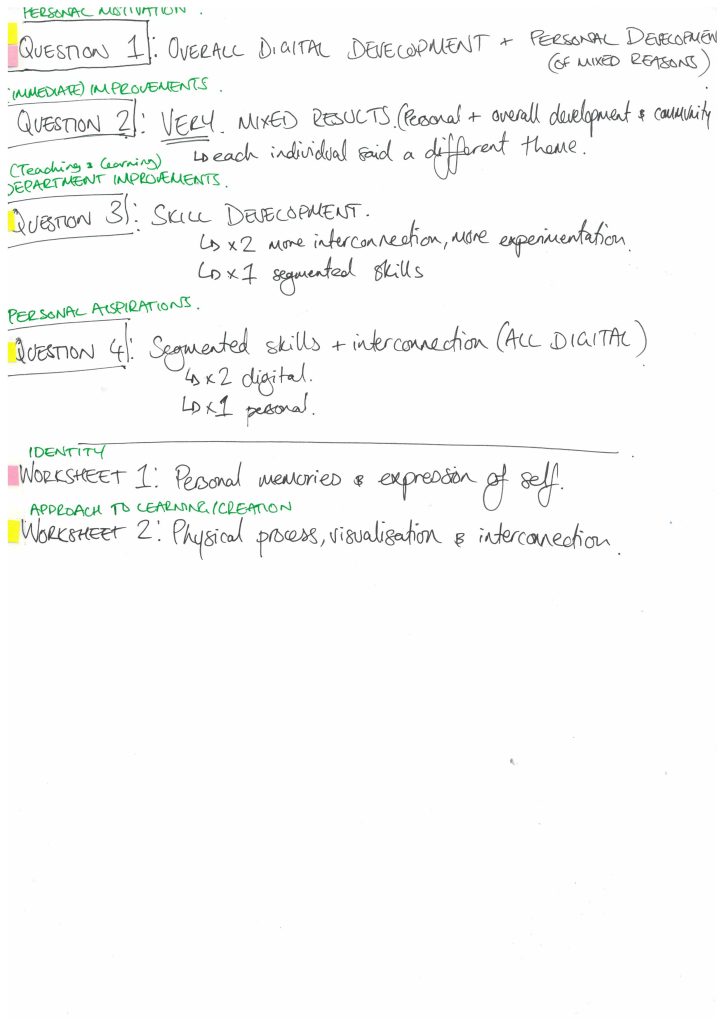 PERSONAL MOTIVATION.
QUESTION 1: OVERALL DIGITAL DEVELOPMENT + PERSONAL DEVELOPMEN
(OF MIXED REASONS)
(IMMEDIATE) IMPROVEMENTS.
QUESTION 2: VERY MIXED RESULTS. (Personal + overall development & community
↳ each individual said a different theme.
(Teaching & Learning)
DEPARTMENT IMPROVEMENTS.
QUESTION 3: SKILL DEVELOPMENT.
↳ x2 more interconnection, more experimentation.
↳ x1 segmented skills
PERSONAL ASPIRATIONS.
QUESTION 4: Segmented skills + interconnection (ALL DIGITAL)
↳ x2 digital.
↳ x1 personal.
IDENTITY
WORKSHEET 1: Personal memories & expression of self.
APPROACH TO LEARNING/CREATION
WORKSHEET 2: Physical process, visualisation & interconnection.